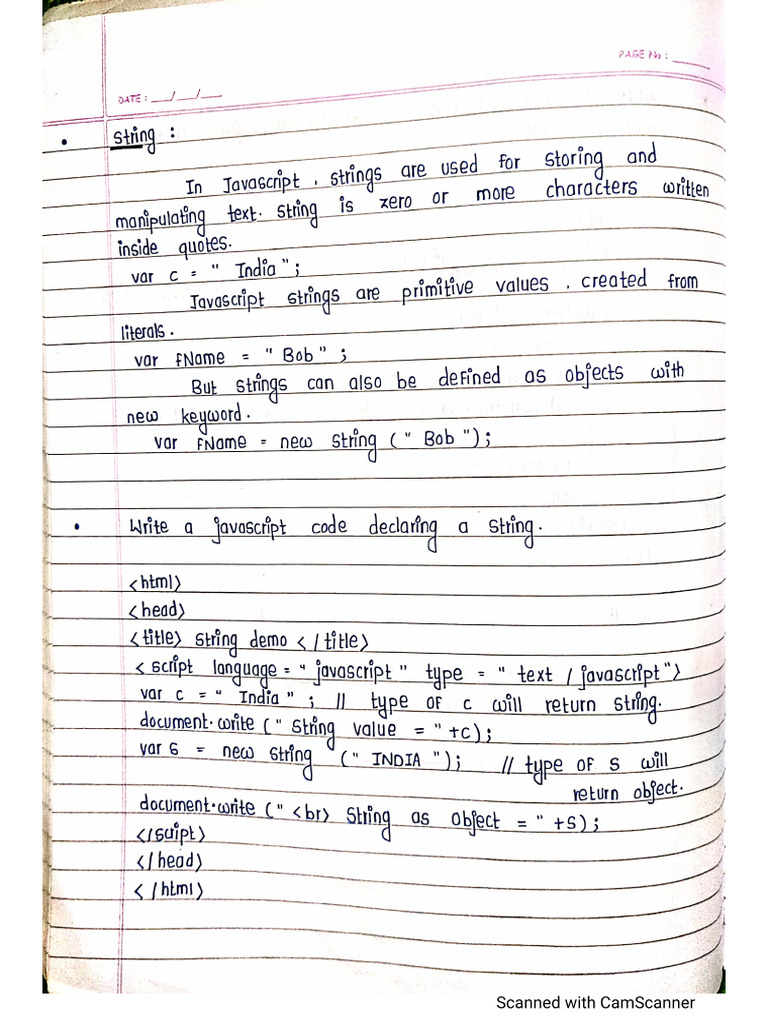 PAGE No :
DATE : __/__/__
• string :
In Javascript , strings are used for storing and
manipulating text. string is zero or more characters written
inside quotes.
var c = " India ";
Javascript strings are primitive values , created from
literals .
var fName = " Bob " ;
But strings can also be defined as objects with
new keyword .
var fName = new string ( " Bob ");
• Write a javascript code declaring a string .
<html>
<head>
<title> string demo </title>
< script language = " javascript " type = " text / javascript ">
var c = " India " ; // type of c will return string.
document.write (" String value = " +c);
var S = new string (" INDIA "); // type of s will
return object.
document.write (" <br> String as object = " +s);
</script>
</head>
</html>
Scanned with CamScanner